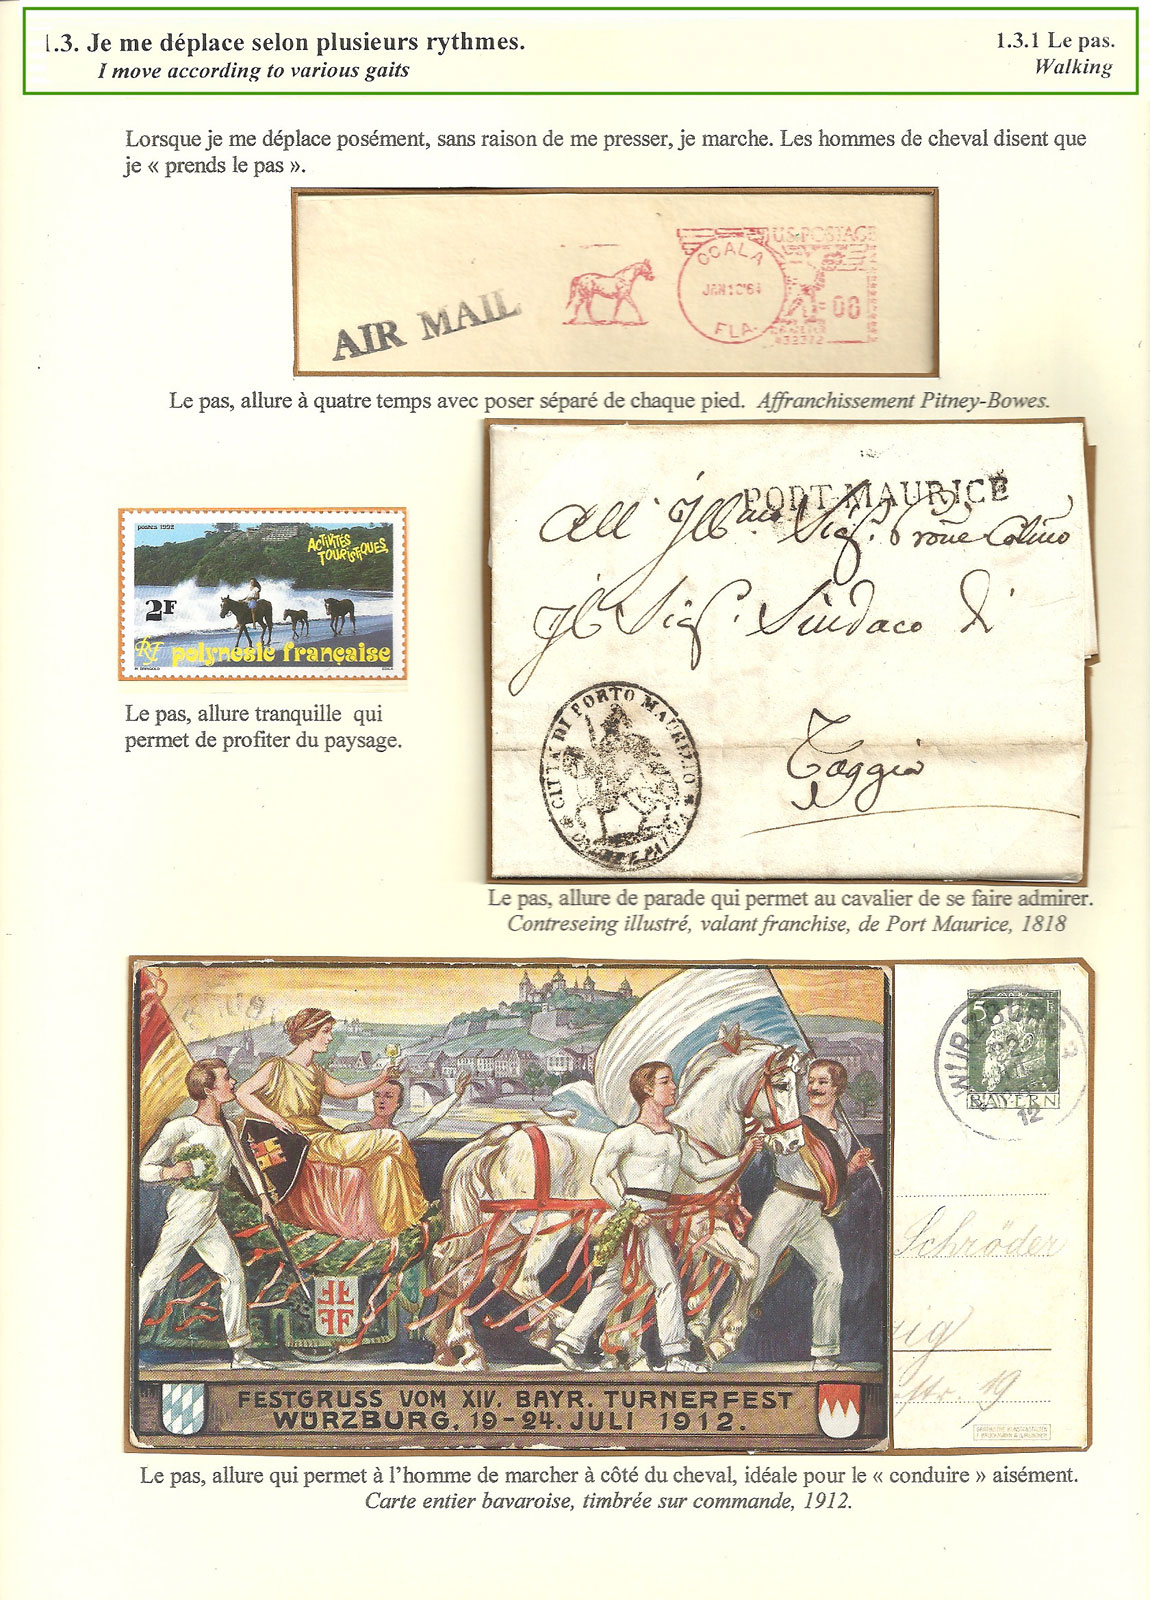 1.3. Je me déplace selon plusieurs rythmes.
I move according to various gaits
1.3.1 Le pas.
Walking
Lorsque je me déplace posément, sans raison de me presser, je marche. Les hommes de cheval disent que
je « prends le pas ».
AIR MAIL
OCALA
FLA.
U.S. POSTAGE
Le pas, allure à quatre temps avec poser séparé de chaque pied. Affranchissement Pitney-Bowes.
postes 1992
ACTIVITÉS
TOURISTIQUES
2F
RF polynesie française
Le pas, allure tranquille qui
permet de profiter du paysage.
PORT-MAURICE
Il Sig. Sindaco di
Taggia
CITTA DI PORTO MAURIZIO
Le pas, allure de parade qui permet au cavalier de se faire admirer.
Contreseing illustré, valant franchise, de Port Maurice, 1818
5
BAYERN
WÜRZBURG
12
Schröder
zig
str. 19
FESTGRUSS VOM XIV. BAYR. TURNERFEST
WÜRZBURG. 19-24. JULI 1912.
Le pas, allure qui permet à l'homme de marcher à côté du cheval, idéale pour le « conduire » aisément.
Carte entier bavaroise, timbrée sur commande, 1912.